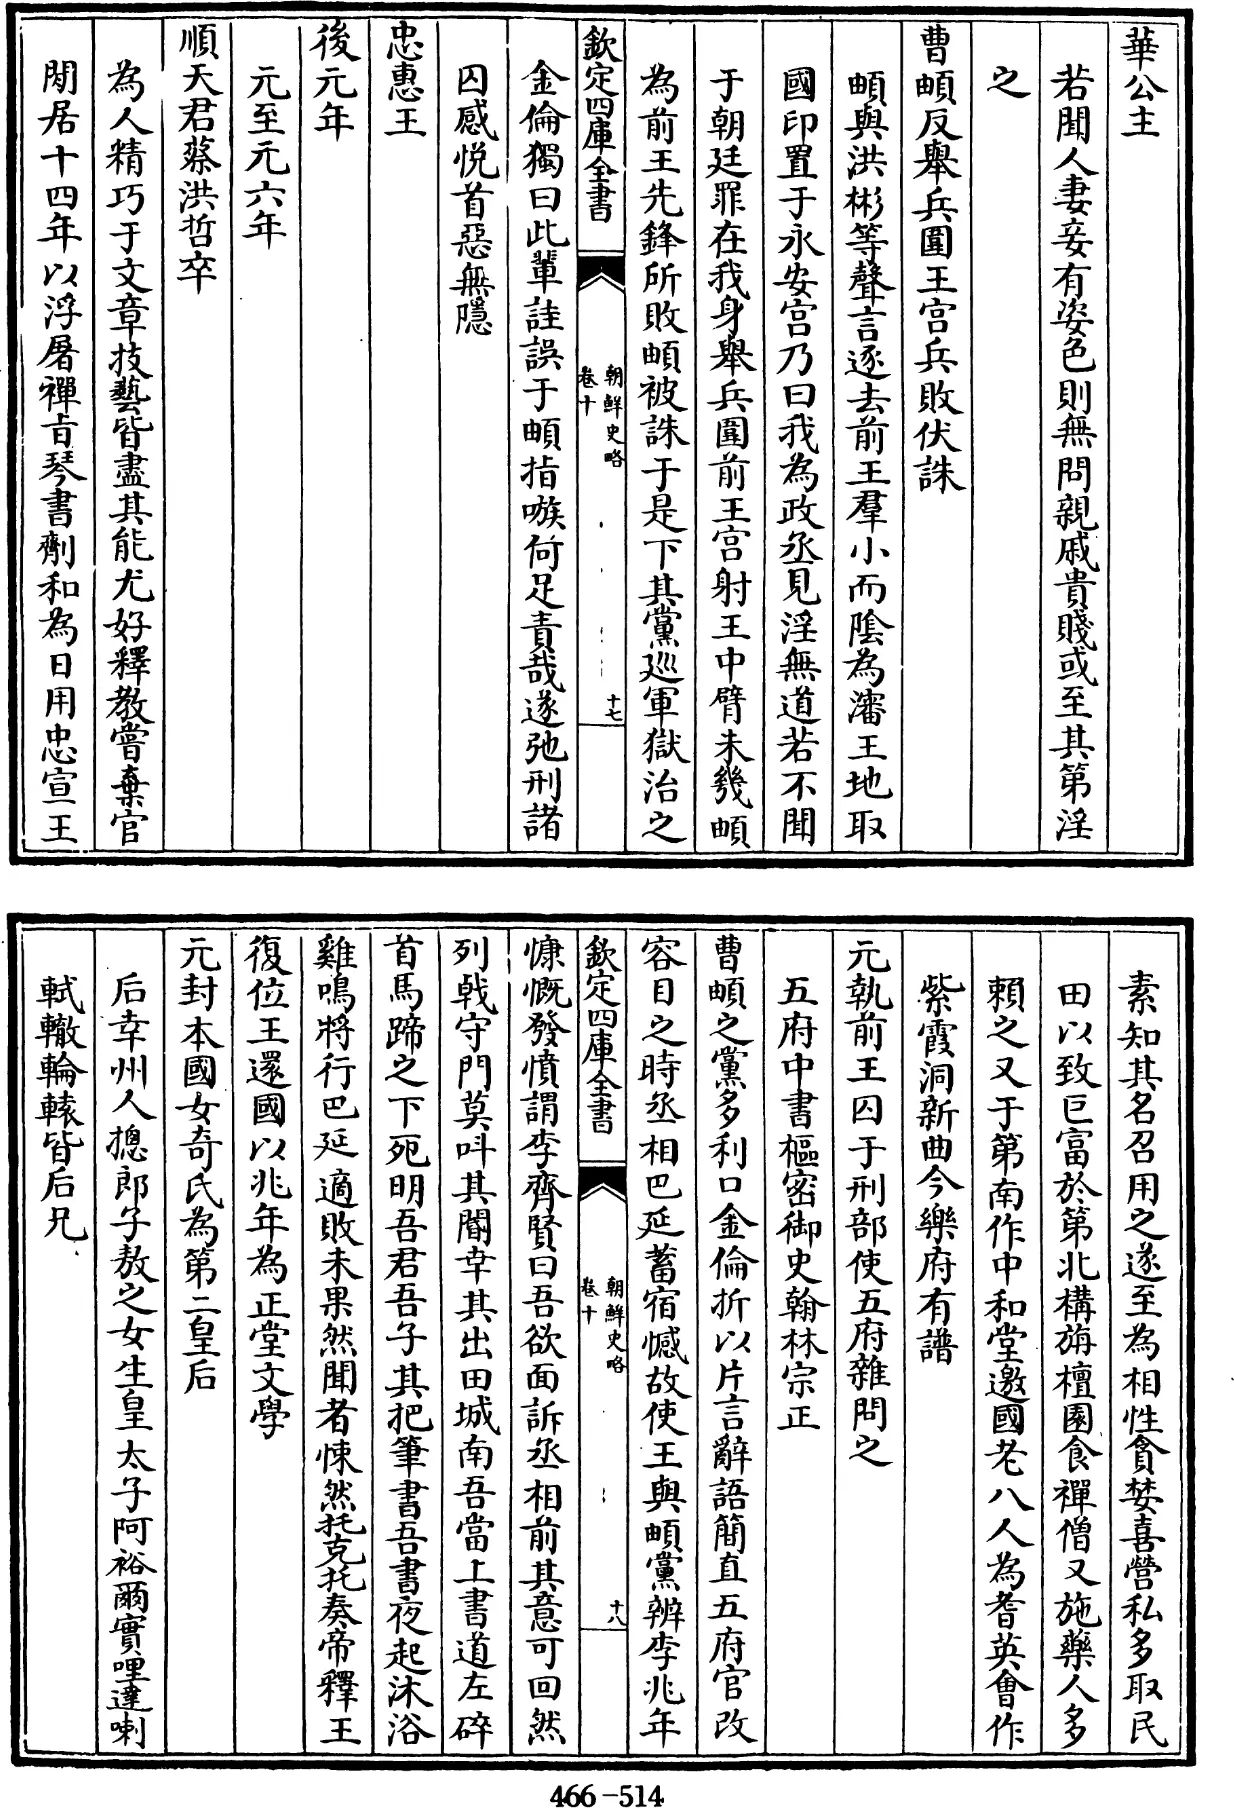 華公主
若聞人妻妾有姿色則無問親戚貴賤或至其第淫
之
曹頔反舉兵圍王宮兵敗伏誅
頔與洪彬等聲言逐去前王羣小而陰為瀋王地取
國印置于永安宮乃曰我為政丞見淫無道若不聞
于朝廷罪在我身舉兵圍前王宮射王中臂未幾頔
為前王先鋒所敗頔被誅于是下其黨巡軍獄治之
欽定四庫全書
朝鮮史略
卷十
十七
金倫獨曰此輩詿誤于頔指嗾何足責哉遂弛刑諸
囚感悅首惡無隱
忠惠王
後元年
元至元六年
順天君蔡洪哲卒
為人精巧于文章技藝皆盡其能尤好釋教嘗棄官
閒居十四年以浮屠禪旨琴書劑和為日用忠宣王
素知其名召用之遂至為相性貪婪喜營私多取民
田以致巨富於第北構旃檀園食禪僧又施藥人多
賴之又于第南作中和堂邀國老八人為耆英會作
紫霞洞新曲今樂府有譜
元執前王囚于刑部使五府雜問之
五府中書樞密御史翰林宗正
曹頔之黨多利口金倫折以片言辭語簡直五府官改
容日之時丞相巴延蓄宿憾故使王與頔黨辨李兆年
欽定四庫全書
朝鮮史略
卷十
十八
慷慨發憤謂李齊賢曰吾欲面訴丞相前其意可回然
列戟守門莫呌其閽幸其出田城南吾當上書道左碎
首馬蹄之下死明吾君吾子其把筆書吾書夜起沐浴
雞鳴將行巴延適敗未果然聞者悚然托克托奏帝釋王
復位王還國以兆年為正堂文學
元封本國女奇氏為第二皇后
后幸州人摠郎子敖之女生皇太子阿裕爾實哩達喇
軾轍輪轅皆后兄
466-514